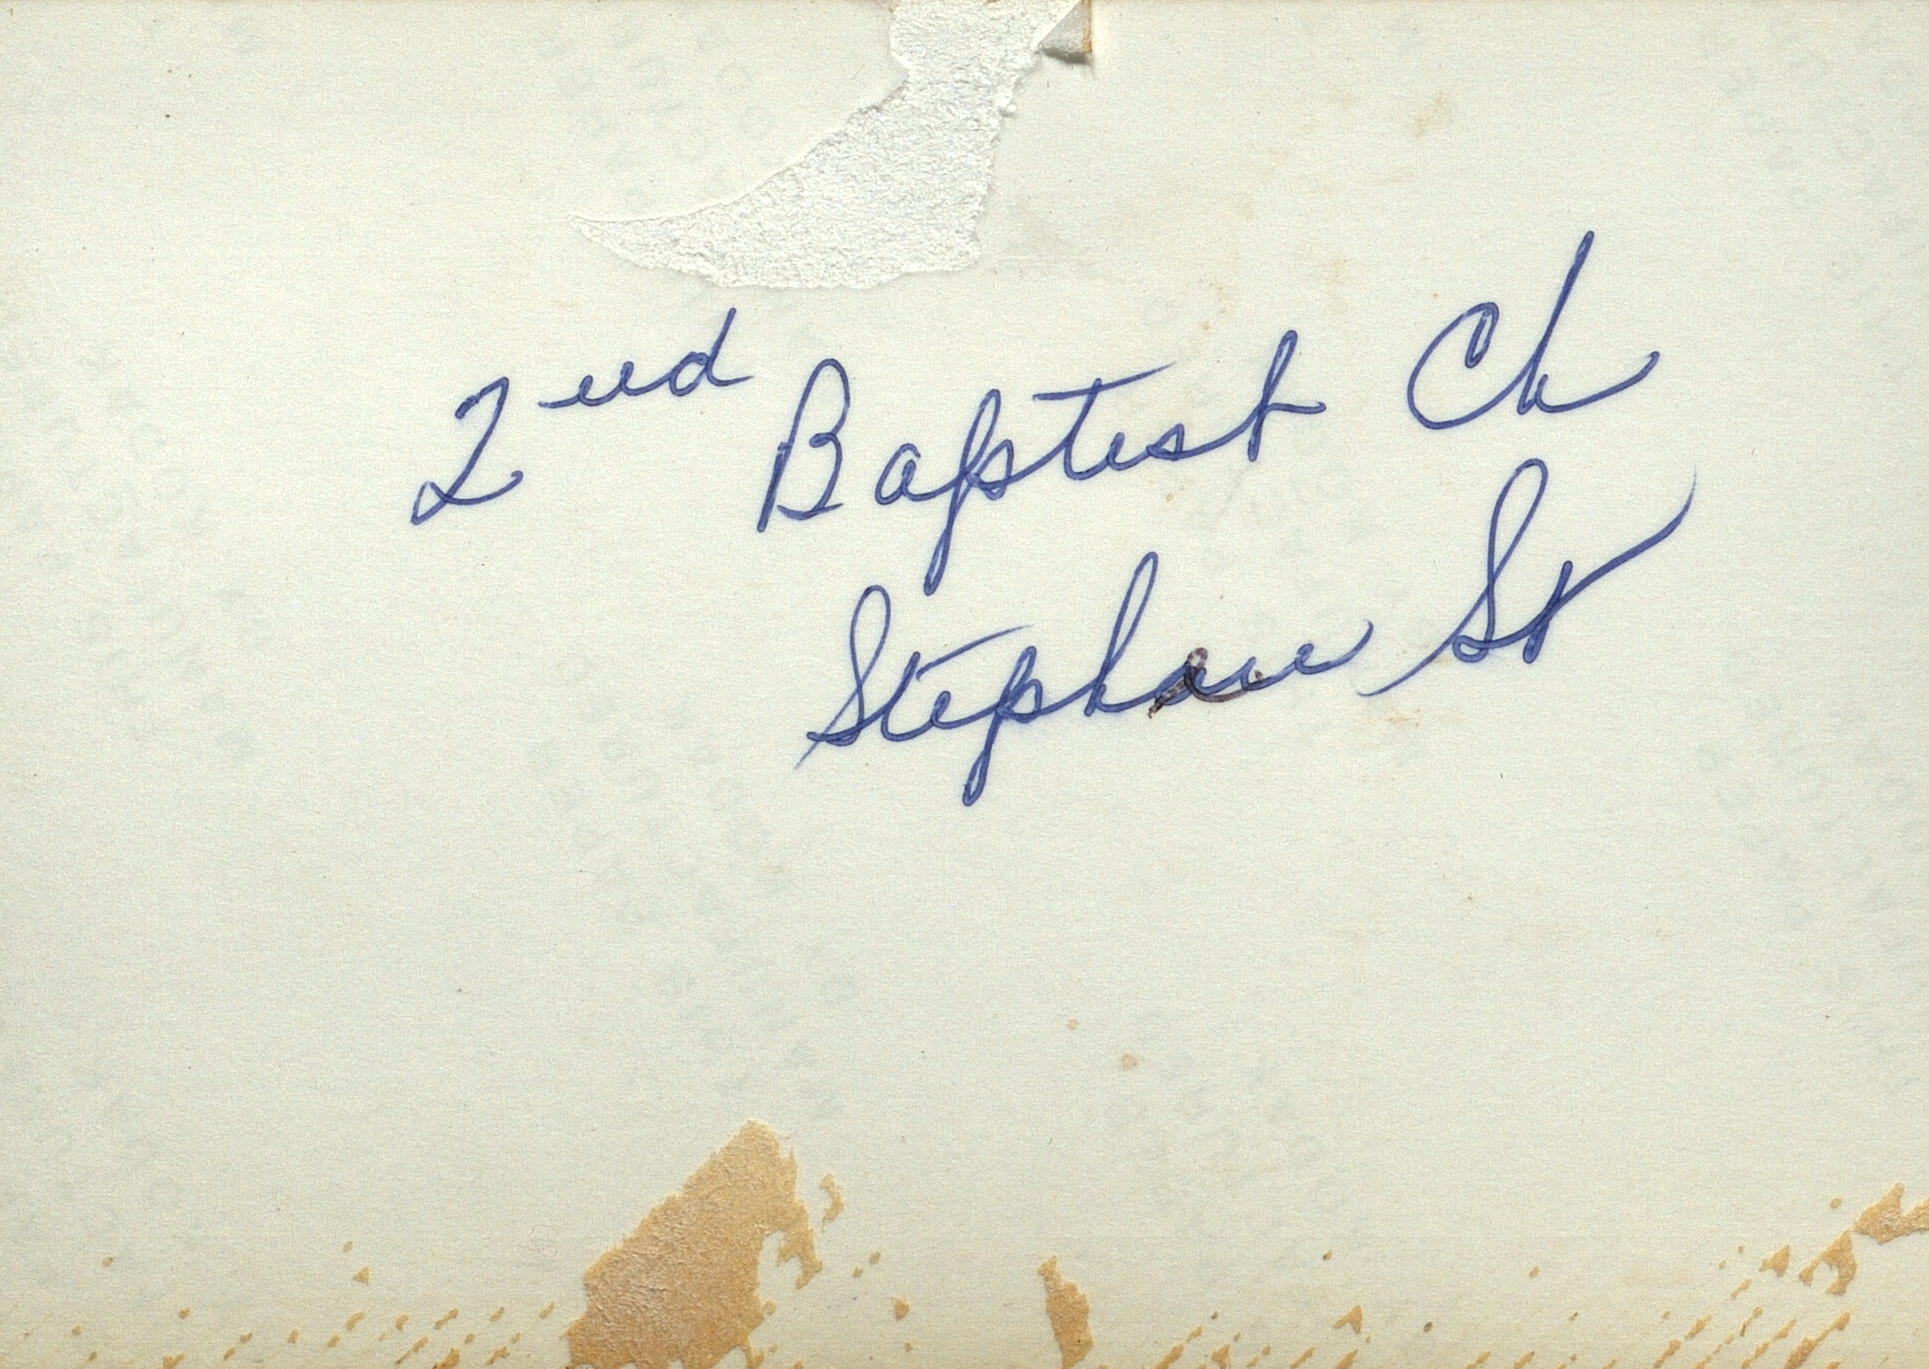 2nd Baptist Ch
Stephan St